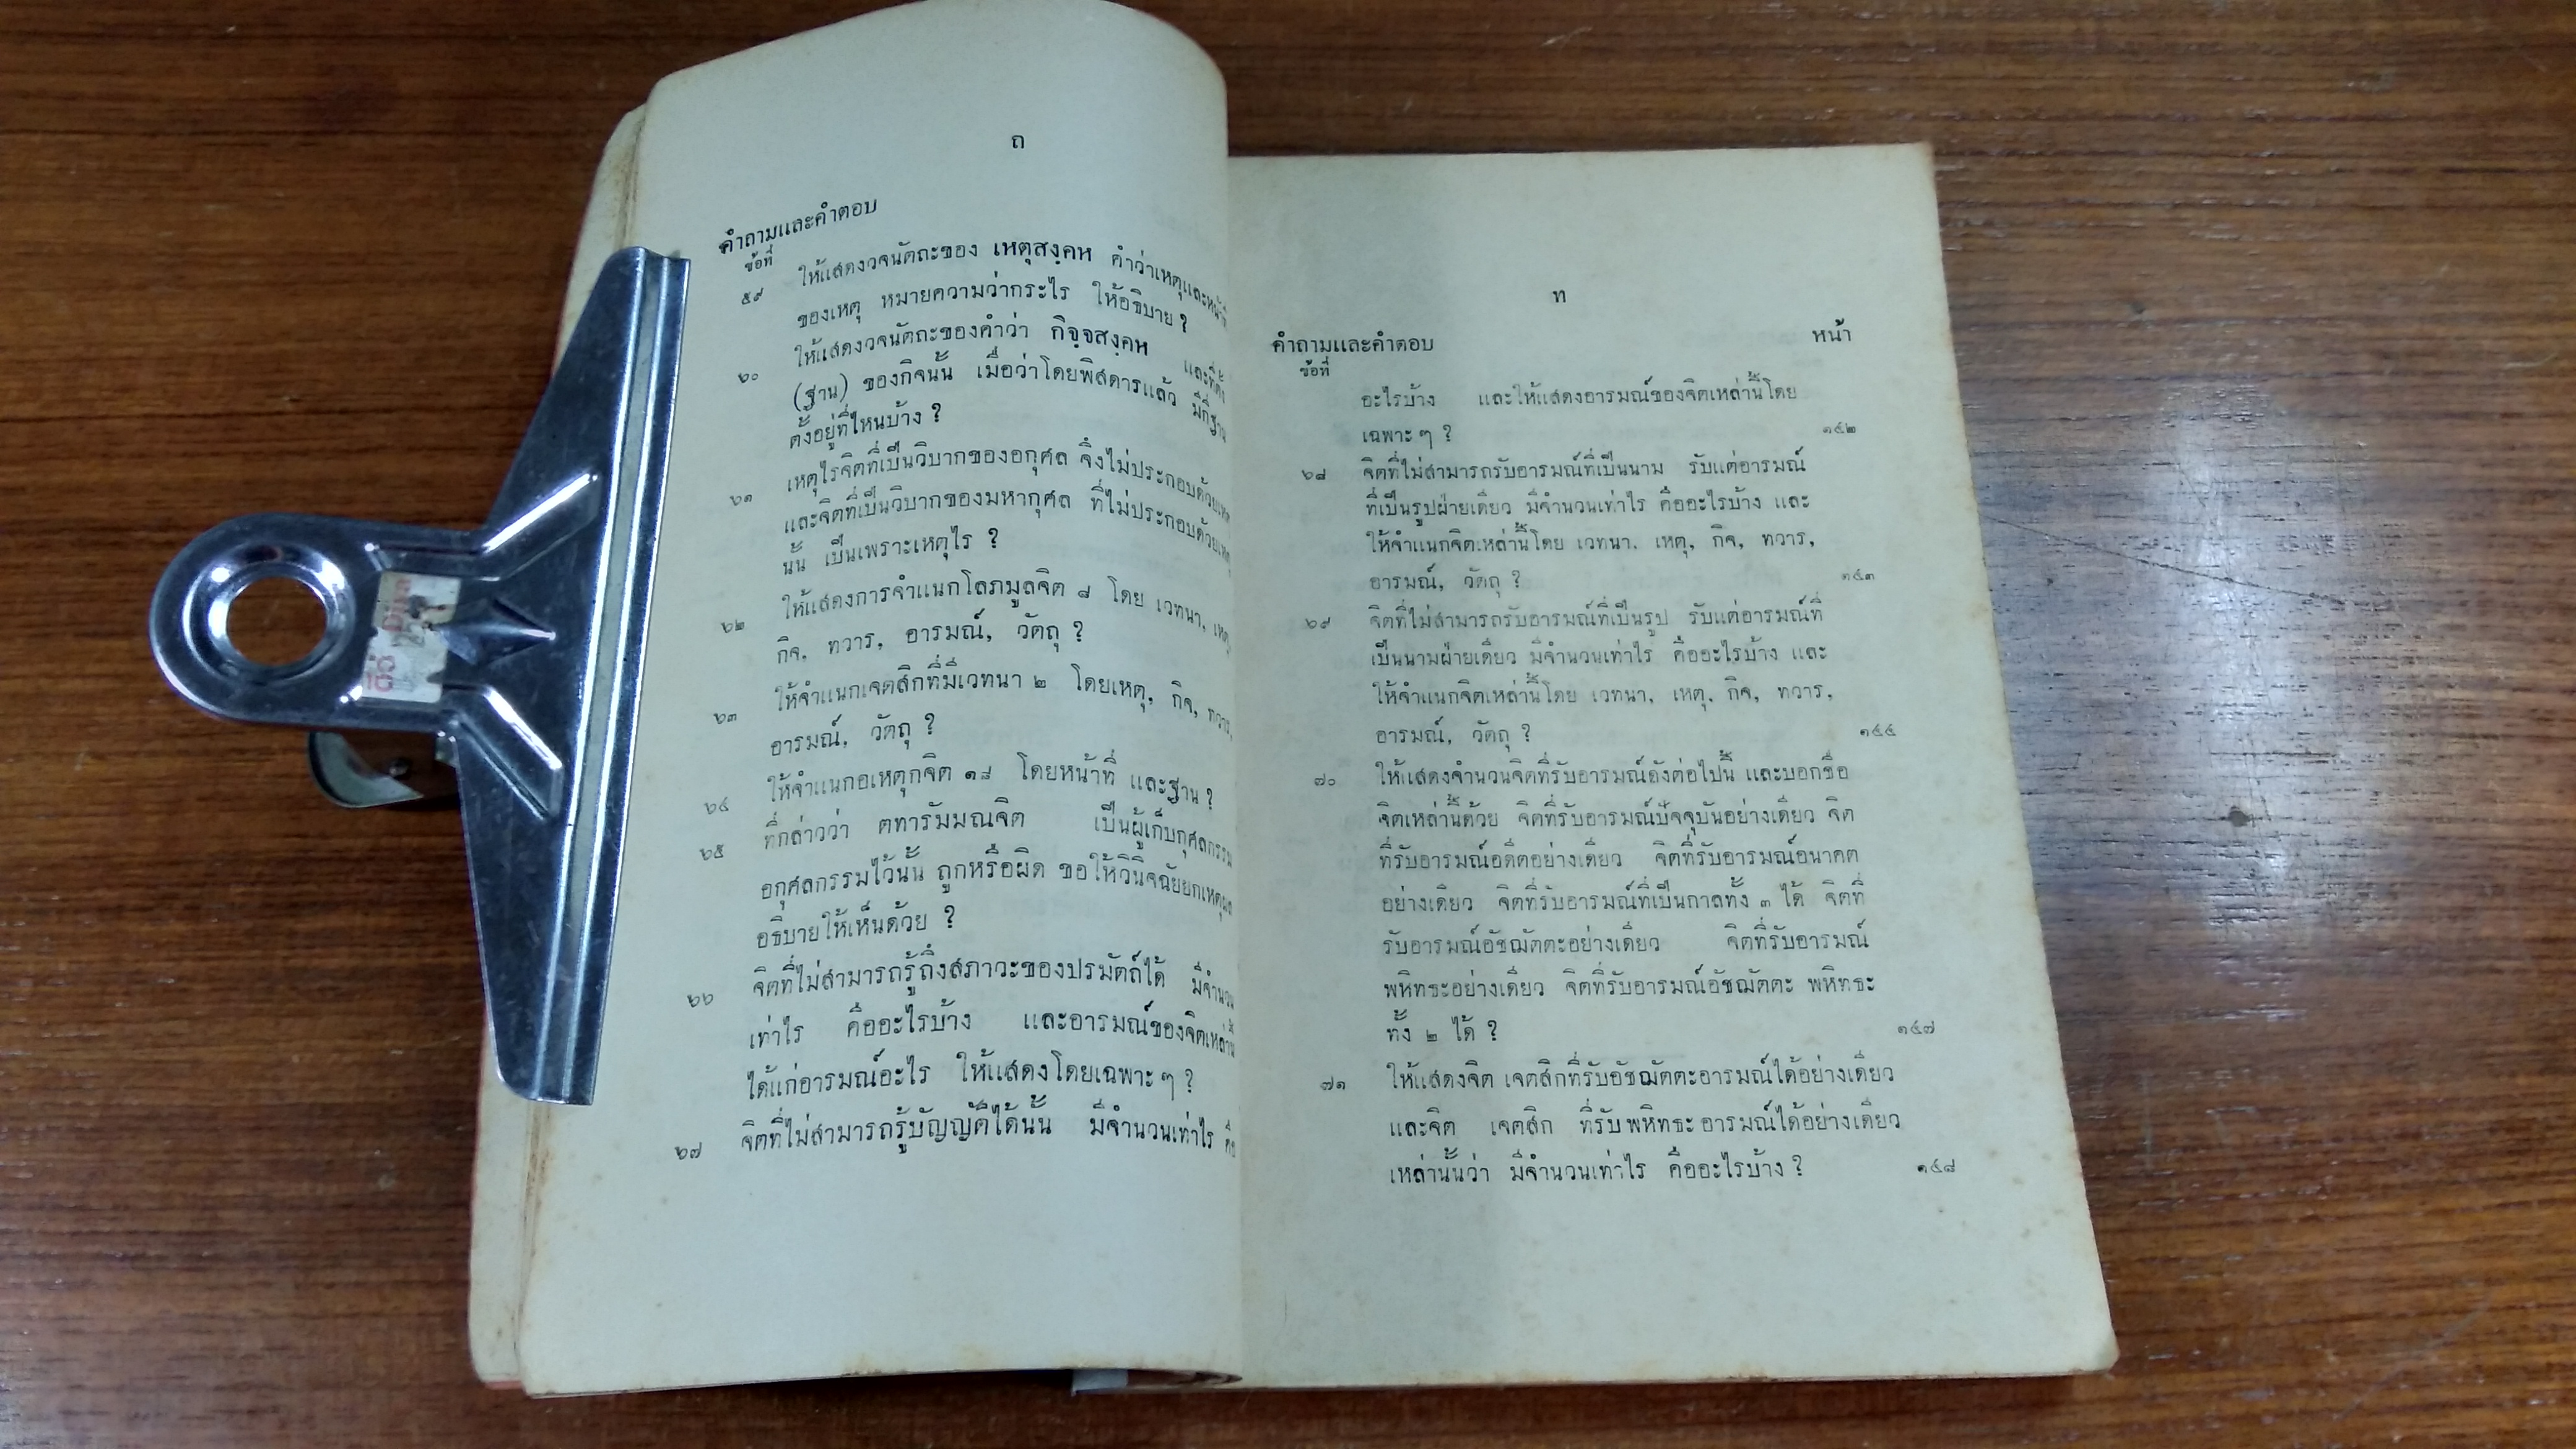 ถ
คำถามและคำตอบ
ข้อที่
๕๙ ให้แสดงวจนัตถะของ เหตุสงฺคห คำว่าเหตุและหน้าที่
ของเหตุ หมายความว่ากระไร ให้อธิบาย ?
๖๐ ให้แสดงวจนัตถะของคำว่า กิจฺจสงฺคห และที่ตั้ง
(ฐาน) ของกิจนั้น เมื่อว่าโดยพิสดารแล้ว มีกี่ฐาน
ตั้งอยู่ที่ไหนบ้าง ?
๖๑ เหตุไรจิตที่เป็นวิบากของอกุศล จึงไม่ประกอบด้วยเหตุ
และจิตที่เป็นวิบากของมหากุศล ที่ไม่ประกอบด้วยเหตุ
นั้น เป็นเพราะเหตุไร ?
๖๒ ให้แสดงการจำแนกโลภมูลจิต ๘ โดย เวทนา, เหตุ,
กิจ, ทวาร, อารมณ์, วัตถุ ?
๖๓ ให้จำแนกเจตสิกที่มีเวทนา ๒ โดยเหตุ, กิจ, ทวาร,
อารมณ์, วัตถุ ?
๖๔ ให้จำแนกอเหตุกจิต ๑๘ โดยหน้าที่ และฐาน ?
๖๕ ที่กล่าวว่า ตทารัมมณจิต เป็นผู้เก็บกุศลกรรม
อกุศลกรรมไว้นั้น ถูกหรือผิด ขอให้วินิจฉัยยกเหตุผล
อธิบายให้เห็นด้วย ?
๖๖ จิตที่ไม่สามารถรู้ถึงสภาวะของปรมัตถ์ได้ มีจำนวน
เท่าไร คืออะไรบ้าง และอารมณ์ของจิตเหล่านั้น
ได้แก่อารมณ์อะไร ให้แสดงโดยเฉพาะ ๆ ?
๖๗ จิตที่ไม่สามารถรู้บัญญัติได้นั้น มีจำนวนเท่าไร คือ
ท
คำถามและคำตอบ หน้า
ข้อที่
อะไรบ้าง และให้แสดงอารมณ์ของจิตเหล่านี้โดย
เฉพาะ ๆ ? ๑๔๒
๖๘ จิตที่ไม่สามารถรับอารมณ์ที่เป็นนาม รับแต่อารมณ์
ที่เป็นรูปฝ่ายเดียว มีจำนวนเท่าไร คืออะไรบ้าง และ
ให้จำแนกจิตเหล่านี้โดย เวทนา, เหตุ, กิจ, ทวาร,
อารมณ์, วัตถุ ? ๑๔๓
๖๙ จิตที่ไม่สามารถรับอารมณ์ที่เป็นรูป รับแต่อารมณ์ที่
เป็นนามฝ่ายเดียว มีจำนวนเท่าไร คืออะไรบ้าง และ
ให้จำแนกจิตเหล่านี้โดย เวทนา, เหตุ, กิจ, ทวาร,
อารมณ์, วัตถุ ? ๑๔๔
๗๐ ให้แสดงจำนวนจิตที่รับอารมณ์ดังต่อไปนี้ และบอกชื่อ
จิตเหล่านี้ด้วย จิตที่รับอารมณ์ปัจจุบันอย่างเดียว จิต
ที่รับอารมณ์อดีตอย่างเดียว จิตที่รับอารมณ์อนาคต
อย่างเดียว จิตที่รับอารมณ์ที่เป็นกาลทั้ง ๓ ได้ จิตที่
รับอารมณ์อัชฌัตตะอย่างเดียว จิตที่รับอารมณ์
พหิทธะอย่างเดียว จิตที่รับอารมณ์อัชฌัตตะ พหิทธะ
ทั้ง ๒ ได้ ? ๑๔๗
๗๑ ให้แสดงจิต เจตสิกที่รับอัชฌัตตะอารมณ์ได้อย่างเดียว
และจิต เจตสิก ที่รับพหิทธะอารมณ์ได้อย่างเดียว
เหล่านั้นว่า มีจำนวนเท่าไร คืออะไรบ้าง ? ๑๔๘